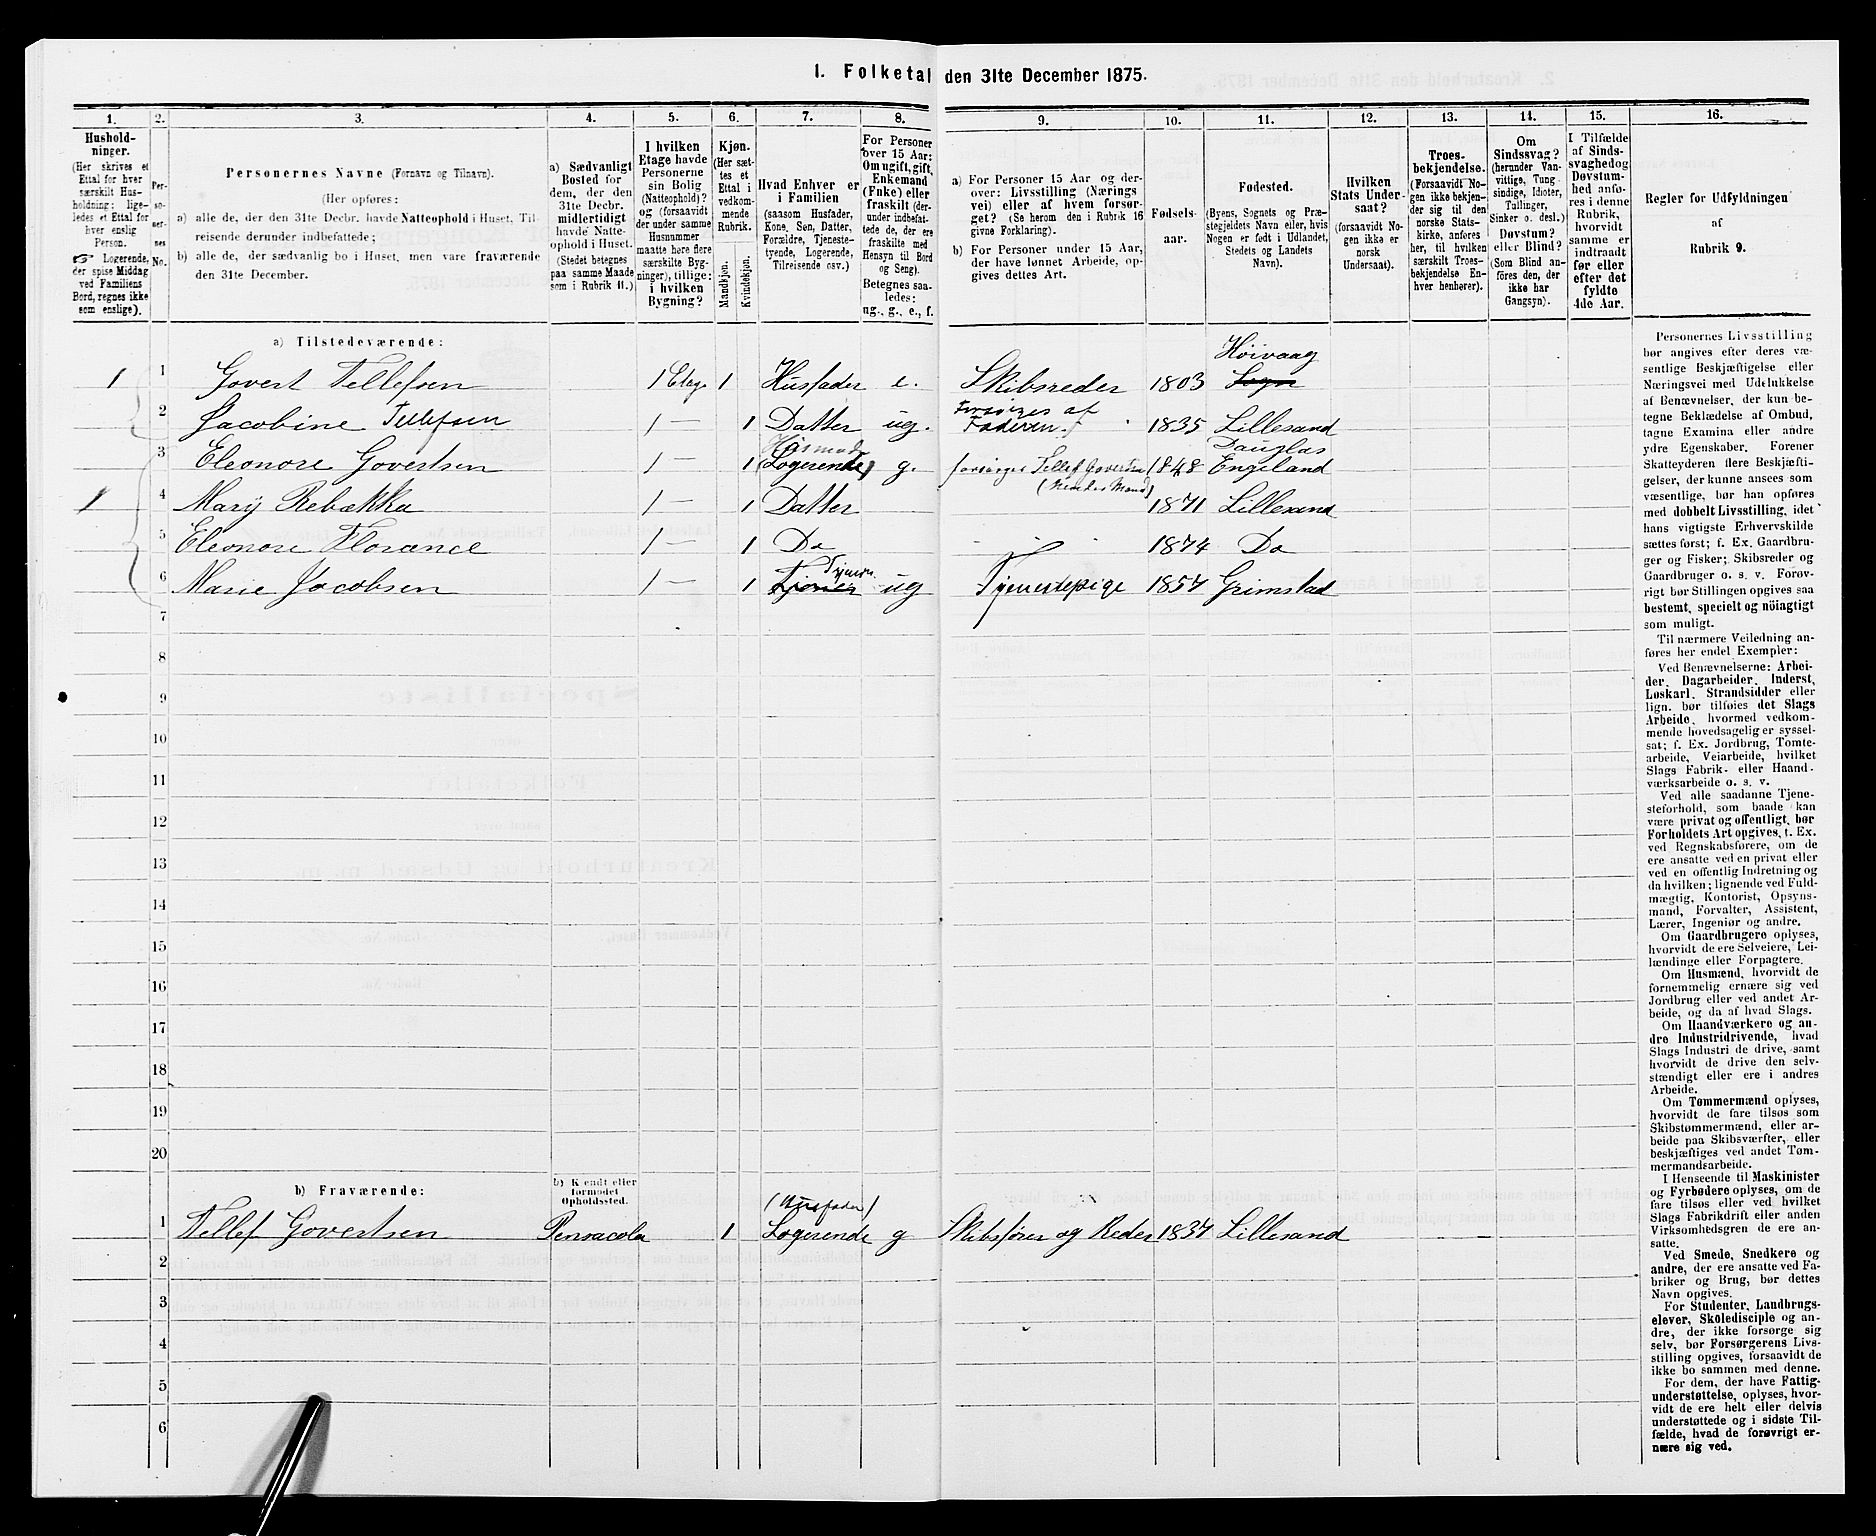 1. Folketal den 31te December 1875.
1. 2. 3. 4. 5. 6. 7. 8. 9. 10. 11. 12. 13. 14. 15. 16.
Hushold-
ninger.
(Her skrives et
Ettal for hver
særskilt Hus-
holdning; lige-
ledes et Ettal for
hver enslig
Person.
☞ Logerende,
der spise Middag
ved Familiens
Bord, regnes ikke
som enslige).
Per-
so-
ner-
nes
No.
Personernes Navne (Fornavn og Tilnavn).
(Her opføres:
a) alle de, der den 31te Decbr. havde Natteophold i Huset, Til-
reisende derunder indbefattede;
b) alle de, der sædvanlig bo i Huset, men vare fraværende
den 31te December.
a) Sædvanligt
Bosted for
dem, der den
31te Decbr.
midlertidigt
havde Natte-
ophold i Huset.
(Stedet betegnes
paa samme Maade
som i Rubrik 11.)
I hvilken
Etage havde
Personerne
sin Bolig
(Natteophold)?
og (forsaavidt
der under samme
Husnummer
maatte høre flere
særskilte Byg-
ninger), tillige:
i hvilken
Bygning?
Kjøn.
(Her sæt-
tes et
Ettal i
vedkom-
mende
Rubrik.
Mandkjøn.
Kvindekjøn.
Hvad Enhver er
i Familien
(saasom Husfader,
Kone, Søn, Datter,
Forældre, Tjeneste-
tyende, Logerende,
Tilreisende osv.)
For Personer
over 15 Aar:
Om ugift, gift,
Enkemand
(Enke) eller
fraskilt (der-
under indbefat-
tede de, der ere
fraskilte med
Hensyn til Bord
og Seng).
Betegnes saa-
ledes:
ug., g., e., f.
a) For Personer 15 Aar og der-
over: Livsstilling (Nærings
vei) eller af hvem forsør-
get? (Se herom den i Rubrik 16
givne Forklaring).
b) For Personer under 15 Aar,
der have lønnet Arbeide, op-
gives dettes Art.
Fødsels-
aar.
Fødested.
(Byens, Sognets og Præ-
stegjeldets Navn eller, hvis
Nogen er født i Udlandet,
Stedets og Landets
Navn).
Hvilken
Stats Under-
saat?
(forsaavidt No-
gen ikke er
norsk
Undersaat).
Troes-
bekjendelse.
(Forsaavidt No-
gen ikke bekjen-
der sig til den
norske Stats-
kirke, anføres
her, til hvilken
særskilt Troes-
bekjendelse En-
hver henhører).
Om
Sindssvag?
(herunder Van-
vittige, Tung
sindige, Idioter,
Tullinger,
Sinker o. desl.)
Døvstum?
eller Blind?
(Som Blind an-
føres den, der
ikke har
Gangsyn).
I Tilfælde
af Sinds-
svaghedog
Døvstum-
hed anfø-
res i denne
Rubrik,
hvorvidt
samme er
indtraadt
før eller
efter det
fyldte
4de Aar.
Regler for Udfyldningen
af
Rubrik 9.
a) Tilstedeværende:
Høivaag
1 1 Govert Tellefsen 1 Etage 1 Husfader e. Skibsreder 1803 Sogn
2 Jacobine Tellefsen 1 — 1 Datter ug. Forsørges af Faderen 1835 Lillesand
Husmoder Douglas
3 Eleonore Govertsen 1 — 1 (Logerende) g. forsørges Tellef Govertsen 1848 Engeland
(hendes Mand)
1 4 Mary Rebækka 1 — 1 Datter 1871 Lillesand
5 Eleonore Florence 1 — 1 Do 1874 Do
Tjenes.
6 Marie Jacobsen 1 — 1 ug Tjenestepige 1857 Grimstad
7
8
9
10
11
12
13
14
15
16
17
18
19
20
b) Fraværende:
b) Kjendt eller
formodet
Opholdssted.
(Husfader)
1 Tellef Govertsen Pensacola 1 Logerende g Skibsfører og Reder 1837 Lillesand
2
3
4
5
6
Personernes Livsstilling
bør angives efter deres væ-
sentlige Beskjæftigelse eller
Næringsvei med Udelukkelse
af Benævnelser, der kun be-
tegne Beklædelse af Ombud,
tagne Examina eller andre
ydre Egenskaber. Forener
Skatteyderen flere Beskjæfti-
gelser, der kunne ansees som
væsentlige, bør han opføres
med dobbelt Livsstilling, idet
hans vigtigste Erhvervskilde
sættes først; f. Ex. Gaardbru-
ger og Fisker; Skibsreder og
Gaardbruger o. s. v. Forøv-
rigt bør Stillingen opgives saa
bestemt, specielt og nöiagtigt
som muligt.
Til nærmere Veiledning an-
føres her endel Exempler:
Ved Benævnelserne: Arbei-
der, Dagarbeider, Inderst,
Løskarl, Strandsidder eller
lign. bør tilføies det Slags
Arbeide, hvormed vedkom-
mende hovedsagelig er syssel-
sat; f. Ex. Jordbrug, Tomte-
arbeide, Veiarbeide, hvilket
Slags Fabrik- eller Haand-
værksarbeide o. s. v.
Ved alle saadanne Tjene-
steforhold, som baade kan
være privat og offentligt, bør
Forholdets Art opgives, t. Ex.
ved Regnskabsførere, om de
ere ansatte ved en privat eller
ved en offentlig Indretning og
da hvilken; lignende ved Fuld-
mægtig, Kontorist, Opsyns-
mand, Forvalter, Assistent,
Lærer, Ingeniør og andre.
Om Gaardbrugere oplyses,
hvorvidt de ere Selveiere, Lei-
lændinge eller Forpagtere.
Om Husmænd, hvorvidt de
fornemmelig ernære sig ved
Jordbrug eller ved andet Ar-
beide, og da af hvad Slags.
Om Haandværkere og an-
dre Industridrivende, hvad
Slags Industri de drive, samt
hvorvidt de drive den selv-
stændigt eller ere i andres
Arbeide.
Om Tømmermænd oplyses,
hvorvidt de fare tilsøs som
Skibstømmermænd, eller ar-
beide paa Skibsværfter, eller
beskjæftiges ved andet Tøm-
mermandsarbeide.
I Henseende til Maskinister
og Fyrbødere oplyses, om de
fare tilsøs eller ved hvilket
Slags Fabrikdrift eller anden
Virksomhedsgren de ere an-
satte.
Ved Smede, Snedkere og
andre, der ere ansatte ved Fa-
briker og Brug, bør dettes
Navn opgives.
For Studenter, Landbrugs-
elever, Skoledisciple og an-
dre, der ikke forsørge sig
selv, bør Forsørgerens Livs-
stilling opgives, forsaavidt de
ikke bo sammen med denne.
For dem, der have Fattig-
understøttelse, oplyses, hvor-
vidt de ere helt eller delvis
understøttede og i sidste Til-
fælde, hvad de forøvrigt er-
nære sig ved.